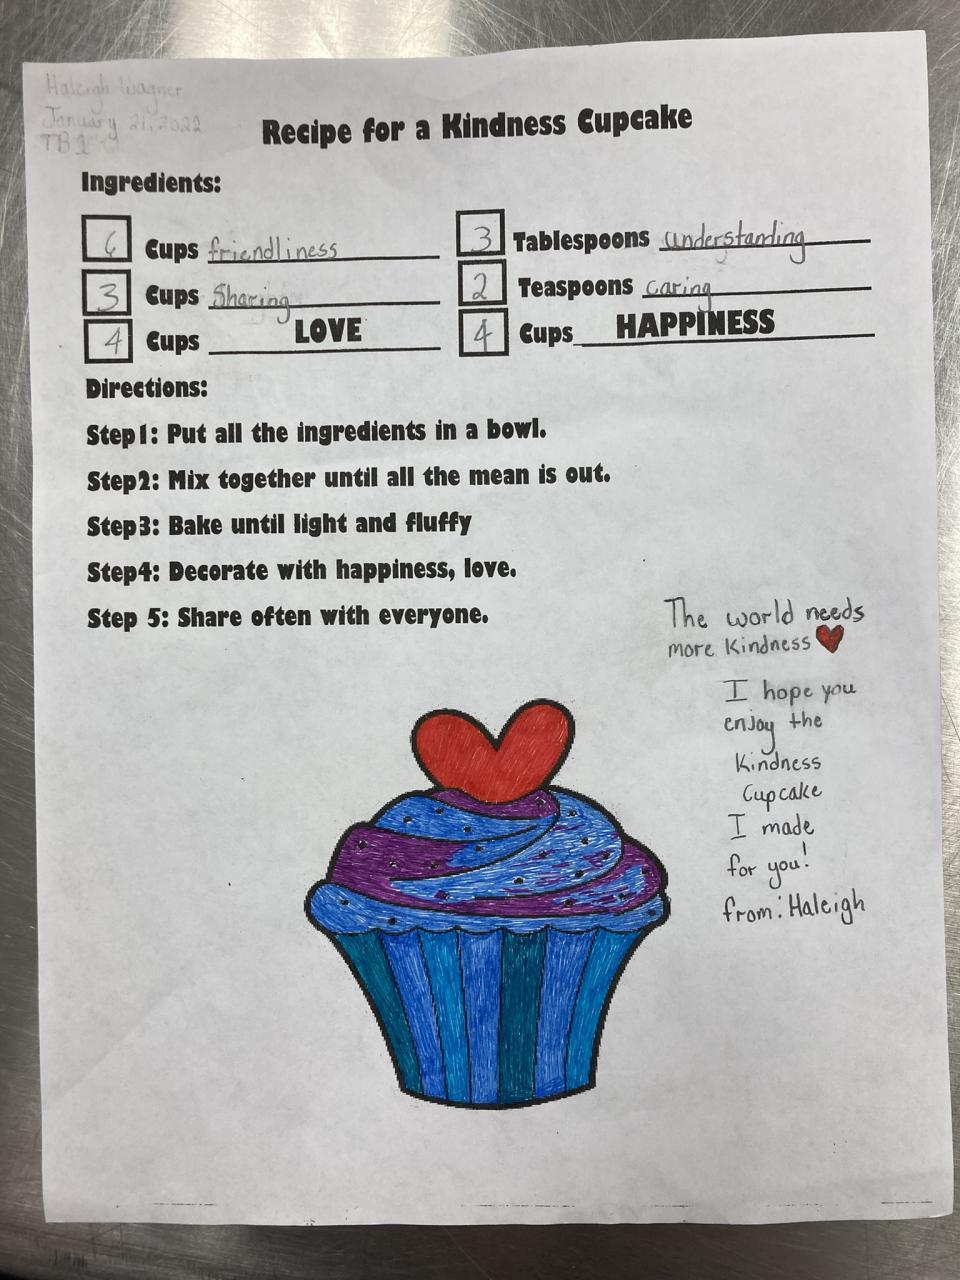 Haleigh Wagner
January 21, 2022
TB1
Recipe for a Kindness Cupcake
Ingredients:
6 Cups friendliness
3 Tablespoons understanding
3 Cups Sharing
2 Teaspoons caring
4 Cups LOVE
4 Cups HAPPINESS
Directions:
Step1: Put all the ingredients in a bowl.
Step2: Mix together until all the mean is out.
Step3: Bake until light and fluffy
Step4: Decorate with happiness, love.
Step 5: Share often with everyone.
The world needs
more Kindness
I hope you
enjoy the
Kindness
Cupcake
I made
for you!
from: Haleigh